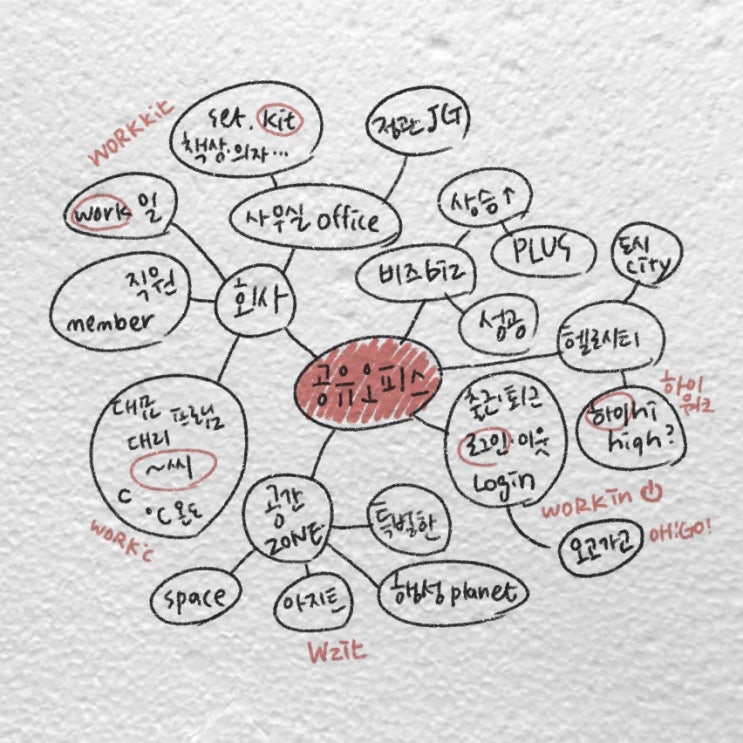 WORKKit
set. kit
책상·의자...
정관 JG
work 일
사무실 office
상승↑
PLUS
도시
city
직원
member
회사
비즈 biz
성공
헬로시티
공유오피스
하이
워크
하이hi
high?
출근·퇴근
로그인·아웃
Login
대표 프로님
대리
~씨
C °C 온도
WORK:C
공간
ZONE
특별한
WORKin
오고가고
OH!GO!
space
아지트
행성 planet
Wzit